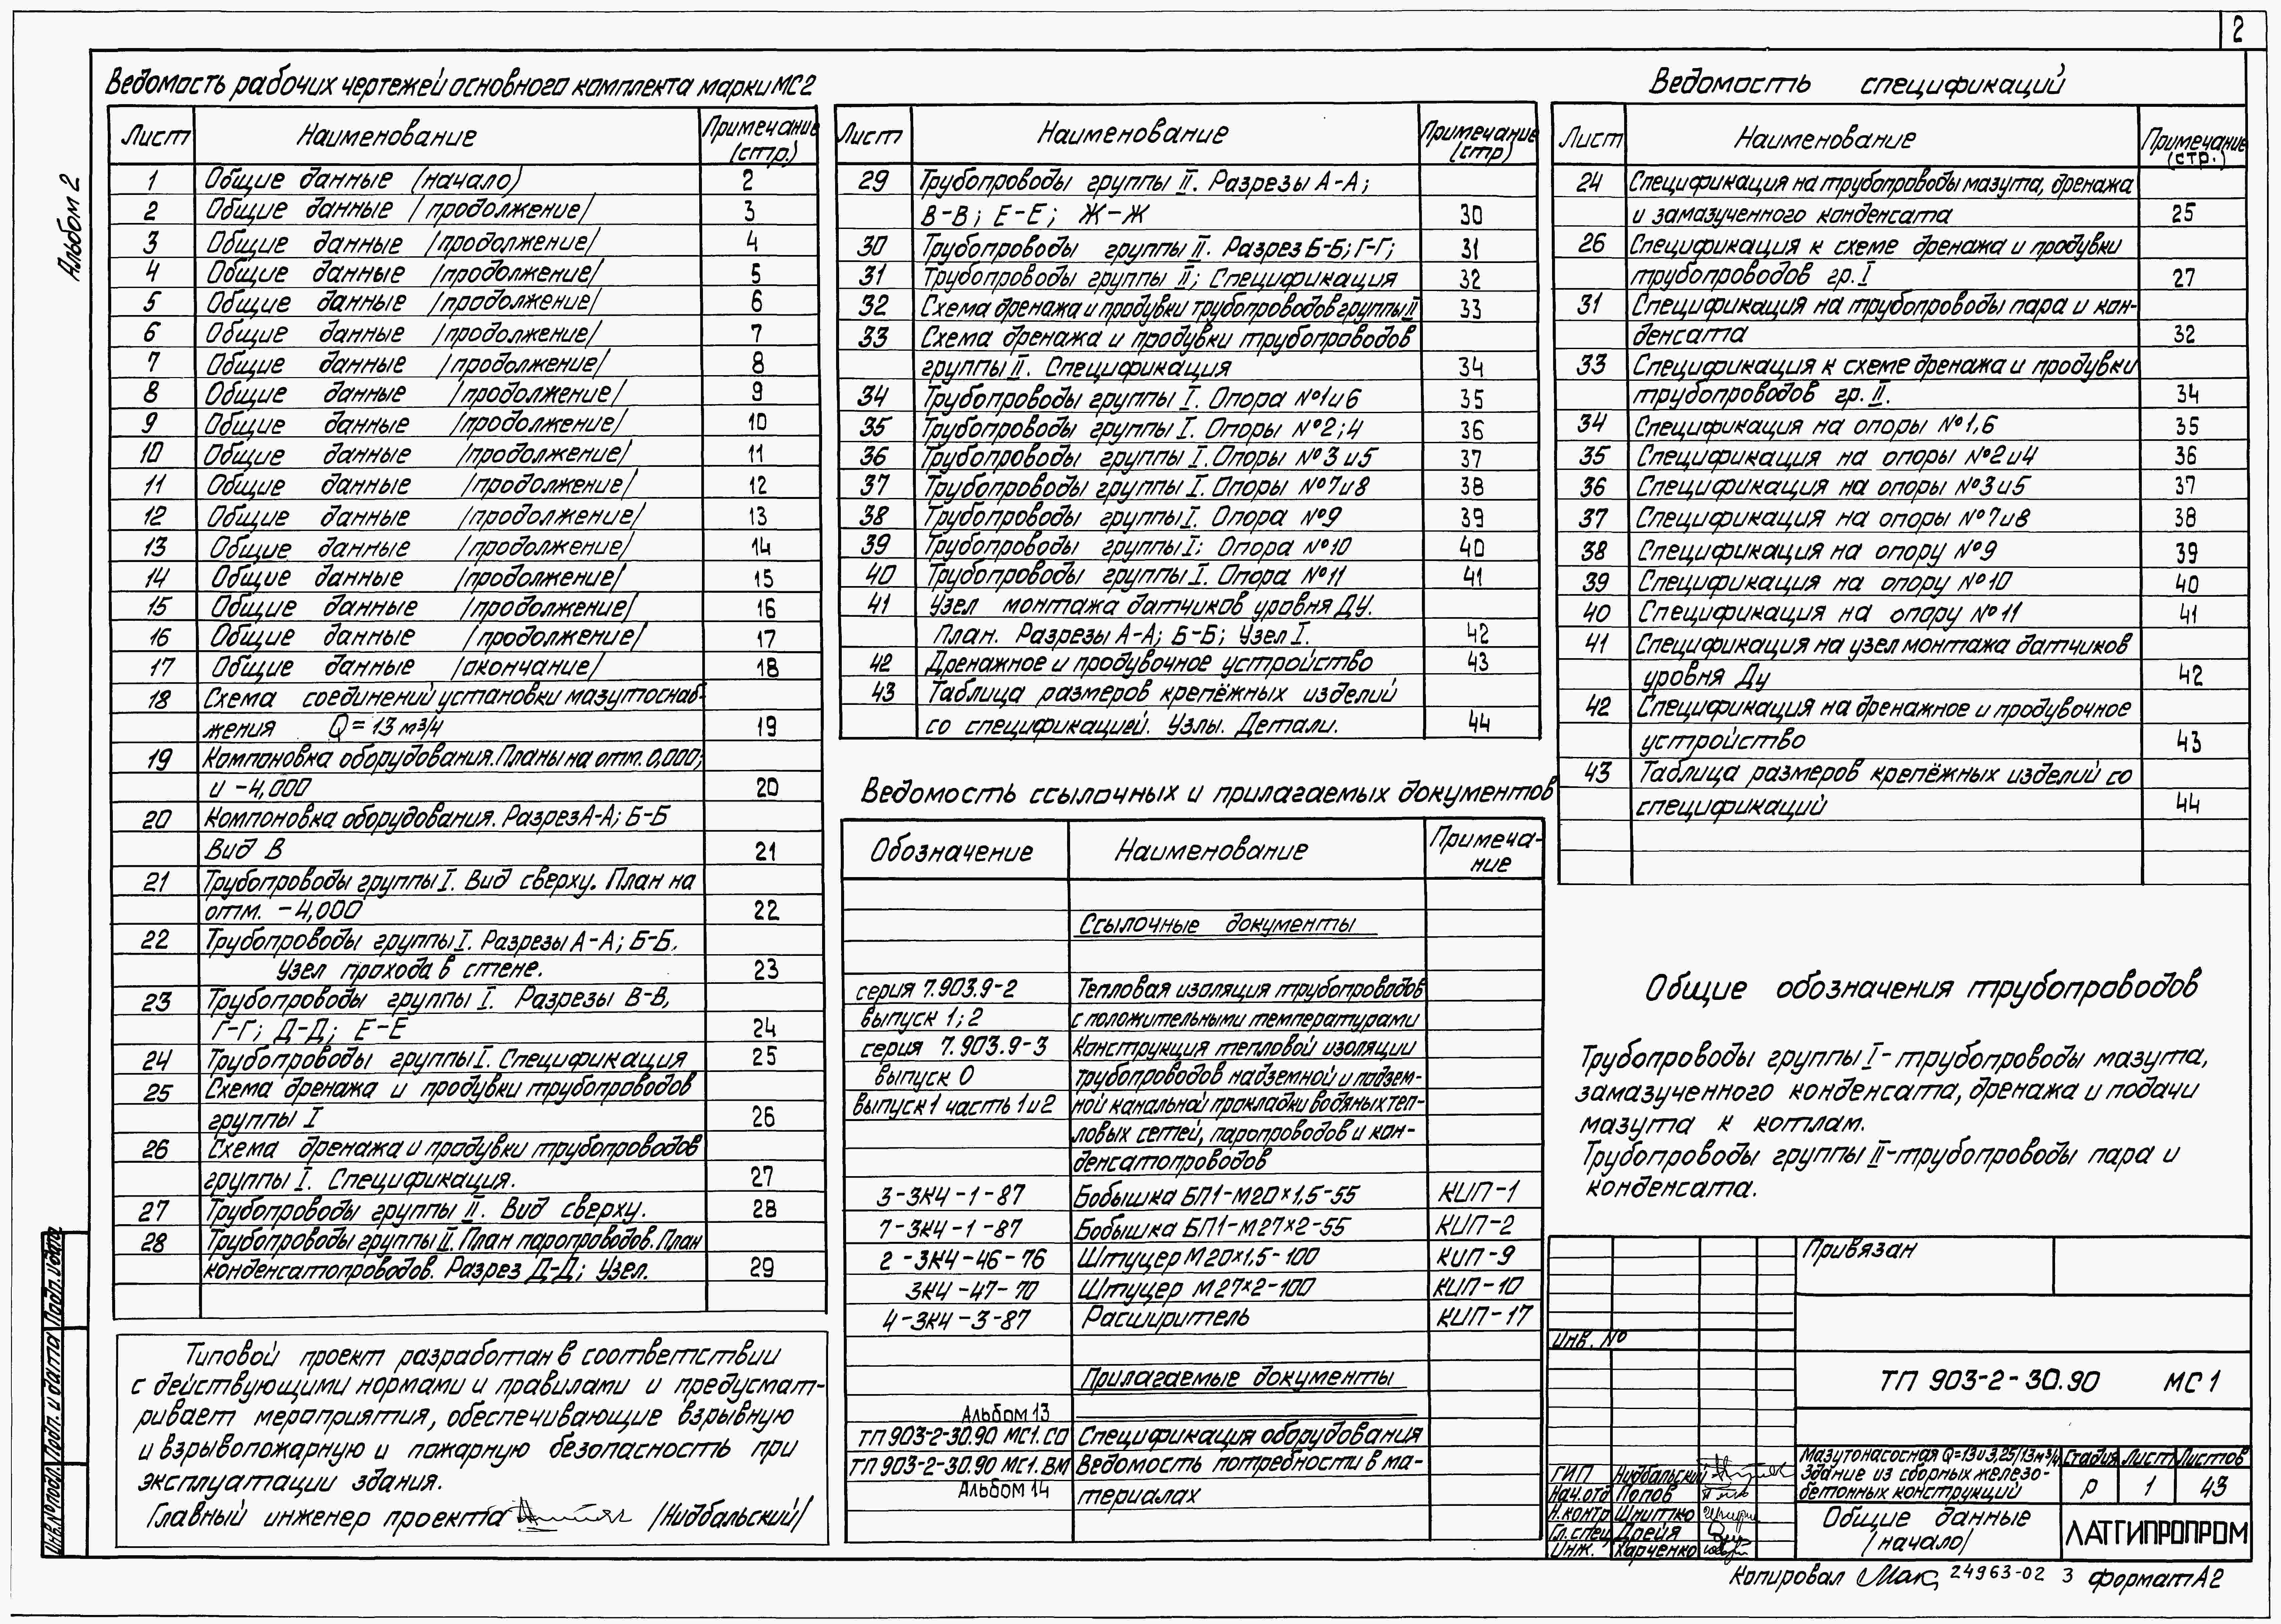 2
Альбом 2
Ведомость рабочих чертежей основного комплекта марки МС2
Лист Наименование Примечание (стр.)
1 Общие данные (начало) 2
2 Общие данные /продолжение/ 3
3 Общие данные /продолжение/ 4
4 Общие данные /продолжение/ 5
5 Общие данные /продолжение/ 6
6 Общие данные /продолжение/ 7
7 Общие данные /продолжение/ 8
8 Общие данные /продолжение/ 9
9 Общие данные /продолжение/ 10
10 Общие данные /продолжение/ 11
11 Общие данные /продолжение/ 12
12 Общие данные /продолжение/ 13
13 Общие данные /продолжение/ 14
14 Общие данные /продолжение/ 15
15 Общие данные /продолжение/ 16
16 Общие данные /продолжение/ 17
17 Общие данные /окончание/ 18
18 Схема соединений установки мазутоснаб-
жения Q = 13 м3/ч 19
19 Компановка оборудования. Планы на отм. 0,000;
и -4,000 20
20 Компоновка оборудования. Разрез А-А; Б-Б
Вид В 21
21 Трубопроводы группы I. Вид сверху. План на
отм. -4,000 22
22 Трубопроводы группы I. Разрезы А-А; Б-Б.
Узел прохода в стене. 23
23 Трубопроводы группы I. Разрезы В-В,
Г-Г; Д-Д; Е-Е 24
24 Трубопроводы группы I. Спецификация 25
25 Схема дренажа и продувки трубопроводов
группы I 26
26 Схема дренажа и продувки трубопроводов
группы I. Спецификация. 27
27 Трубопроводы группы II. Вид сверху. 28
28 Трубопроводы группы II. План паропроводов. План
конденсатопроводов. Разрез Д-Д; Узел. 29
Типовой проект разработан в соответствии
с действующими нормами и правилами и предусмат-
ривает мероприятия, обеспечивающие взрывную
и взрывопожарную и пожарную безопасность при
эксплуатации здания.
Главный инженер проекта /Нидбальский/
Лист Наименование Примечание (стр)
29 Трубопроводы группы II. Разрезы А-А;
В-В; Е-Е; Ж-Ж 30
30 Трубопроводы группы II. Разрез Б-Б; Г-Г; 31
31 Трубопроводы группы II; Спецификация 32
32 Схема дренажа и продувки трубопроводов группы II 33
33 Схема дренажа и продувки трубопроводов
группы II. Спецификация 34
34 Трубопроводы группы I. Опора №1 и 6 35
35 Трубопроводы группы I. Опоры №2; 4 36
36 Трубопроводы группы I. Опоры №3 и 5 37
37 Трубопроводы группы I. Опоры №7 и 8 38
38 Трубопроводы группы I. Опора №9 39
39 Трубопроводы группы I; Опора №10 40
40 Трубопроводы группы I. Опора №11 41
41 Узел монтажа датчиков уровня ДУ.
План. Разрезы А-А; Б-Б; Узел I. 42
42 Дренажное и продувочное устройство 43
43 Таблица размеров крепёжных изделий
со спецификацией. Узлы. Детали. 44
Ведомость ссылочных и прилагаемых документов
Обозначение Наименование Примеча-
ние
Ссылочные документы
серия 7.903.9-2 Тепловая изоляция трубопроводов
выпуск 1; 2 с положительными температурами
серия 7.903.9-3 Конструкция тепловой изоляции
выпуск 0 трубопроводов надземной и подзем-
выпуск 1 часть 1 и 2 ной канальной прокладки водяных теп-
ловых сетей, паропроводов и кон-
денсатопроводов
3-ЗК4-1-87 Бобышка БП1-М20×1,5-55 КИП-1
7-ЗК4-1-87 Бобышка БП1-М27×2-55 КИП-2
2-ЗК4-46-76 Штуцер М20×1,5-100 КИП-9
ЗК4-47-70 Штуцер М27×2-100 КИП-10
4-ЗК4-3-87 Расширитель КИП-17
Прилагаемые документы
Альбом 13
ТП 903-2-30.90 МС1.СО Спецификация оборудования
ТП 903-2-30.90 МС1.ВМ Ведомость потребности в ма-
Альбом 14 териалах
Ведомость спецификаций
Лист Наименование Примечание (стр.)
24 Спецификация на трубопроводы мазута, дренажа
и замазученного конденсата 25
26 Спецификация к схеме дренажа и продувки
трубопроводов гр. I 27
31 Спецификация на трубопроводы пара и кон-
денсата 32
33 Спецификация к схеме дренажа и продувки
трубопроводов гр. II. 34
34 Спецификация на опоры №1,6 35
35 Спецификация на опоры №2 и 4 36
36 Спецификация на опоры №3 и 5 37
37 Спецификация на опоры №7 и 8 38
38 Спецификация на опору №9 39
39 Спецификация на опору №10 40
40 Спецификация на опору №11 41
41 Спецификация на узел монтажа датчиков
уровня Ду 42
42 Спецификация на дренажное и продувочное
устройство 43
43 Таблица размеров крепёжных изделий со
спецификаций 44
Общие обозначения трубопроводов
Трубопроводы группы I-трубопроводы мазута,
замазученного конденсата, дренажа и подачи
мазута к котлам.
Трубопроводы группы II-трубопроводы пара и
конденсата.
Привязан
Инв. №
ТП 903-2-30.90 МС1
Мазутонасосная Q=13 и 3,25/13 м3/ч
Здание из сборных железо-
бетонных конструкций
Стадия Лист Листов
Р 1 43
Общие данные
/начало/
ЛАТГИПРОПРОМ
ГИП Нидбальский
Нач.отд Попов
Н.контр Шнитко
Гл.спец Дрейя
Инж. Харченко
Инв.№ подл. Подп. и дата Подп. и дата
Копировал 24963-02 3 формат А2